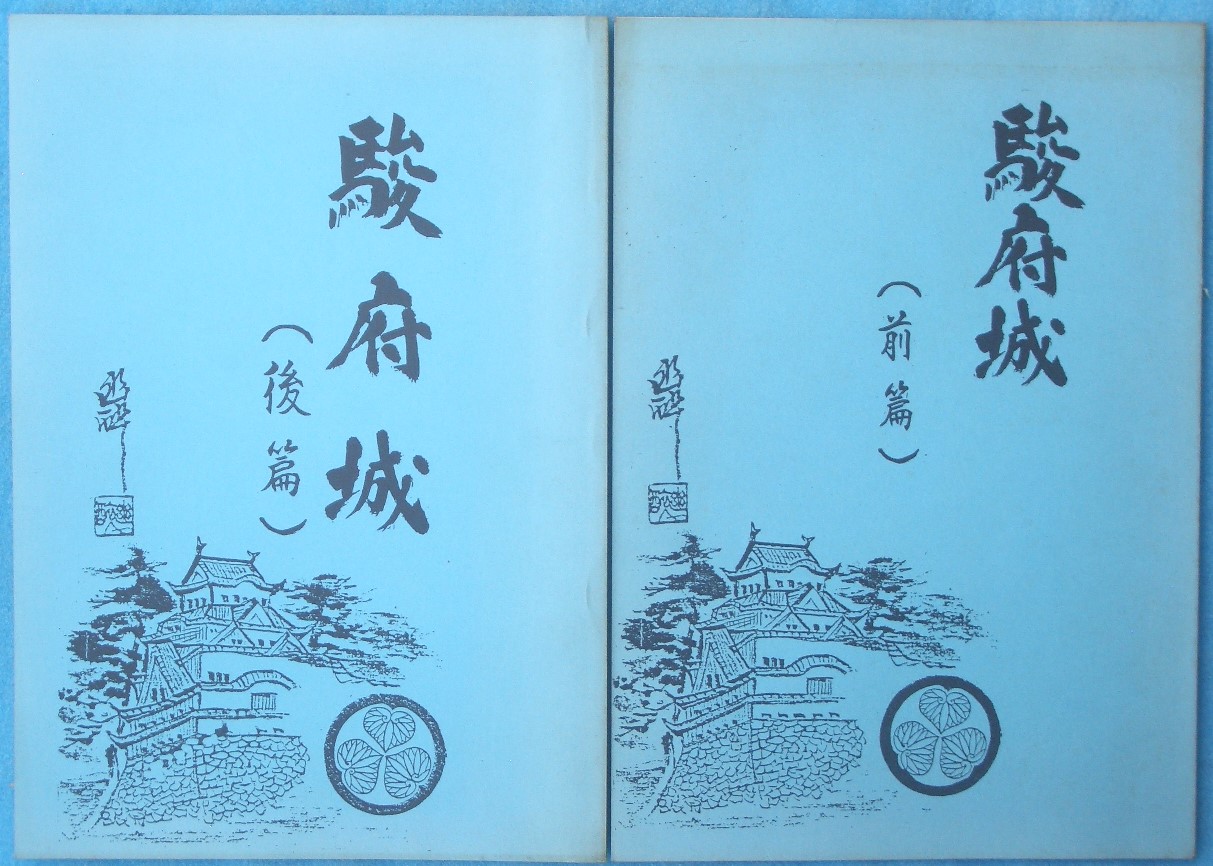 駿府城
(前篇)
駿府城
(後篇)